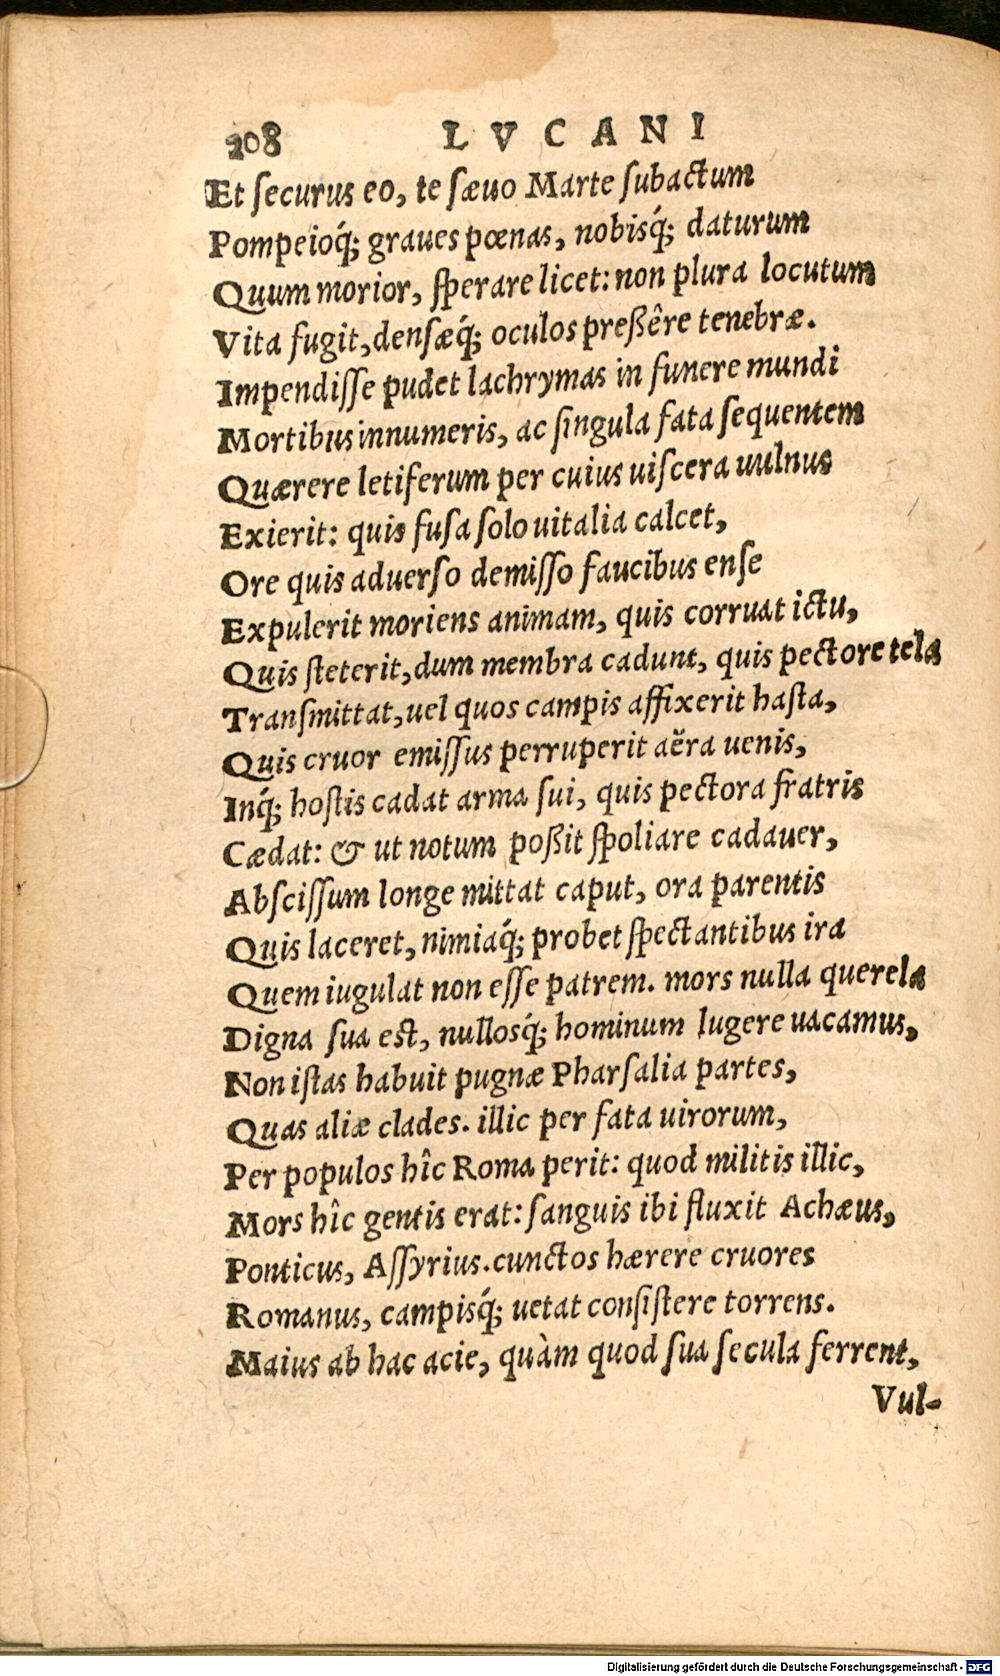 208 LVCANI
Et ſecurus eo, te ſæuo Marte ſubactum
Pompeioq́; graues pœnas, nobisq́; daturum
Quum morior, ſperare licet: non plura locutum
Vita fugit, denſæq́; oculos preßêre tenebræ.
Impendiſſe pudet lachrymas in funere mundi
Mortibus innumeris, ac ſingula fata ſequentem
Quærere letiferum per cuius uiſcera uulnus
Exierit: quis fuſa ſolo uitalia calcet,
Ore quis aduerſo demiſſo faucibus enſe
Expulerit moriens animam, quis corruat ictu,
Quis ſteterit, dum membra cadunt, quis pectore tela
Tranſmittat, uel quos campis affixerit haſta,
Quis cruor emiſſus perruperit aëra uenis,
Inq́; hoſtis cadat arma ſui, quis pectora fratris
Cædat: & ut notum poßit ſpoliare cadauer,
Abſciſſum longe mittat caput, ora parentis
Quis laceret, nimiaq́; probet ſpectantibus ira
Quem iugulat non eſſe patrem. mors nulla querela
Digna ſua eſt, nullosq́; hominum lugere uacamus,
Non iſtas habuit pugnæ Pharſalia partes,
Quas aliæ clades. illic per fata uirorum,
Per populos hîc Roma perit: quod militis illic,
Mors hîc gentis erat: ſanguis ibi fluxit Achæus,
Ponticus, Aſſyrius. cunctos hærere cruores
Romanus, campisq́; uetat conſiſtere torrens.
Maius ab hac acie, quàm quod ſua ſecula ferrent,
Vul-
Digitalisierung gefördert durch die Deutsche Forschungsgemeinschaft - DFG